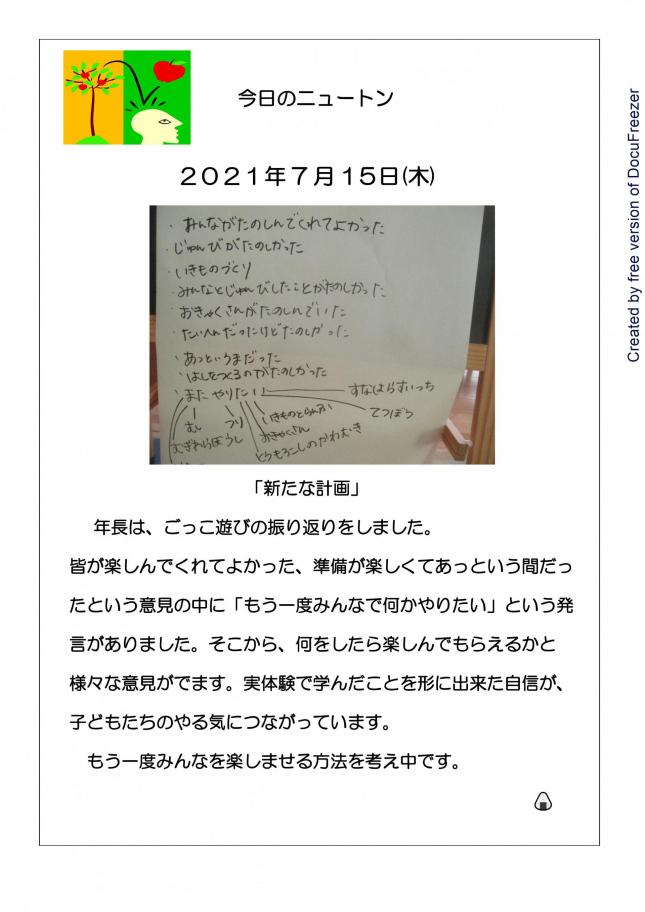 今日のニュートン
2021年7月15日(木)
・みんながたのしんでくれてよかった
・じゅんびがたのしかった
・いきものづくり
・みんなとじゅんびしたことがたのしかった
・おきゃくさんがたのしんでいた
・たいへんだったけどたのしかった
・あっというまだった
・はしをつくるのがたのしかった
・またやりたい
すなはらすいっち
てつぼう
いきものとらんぷ
おきゃくさん
とうもろこしのかわむき
つり
むし
むぎわらぼうし
「新たな計画」
年長は、ごっこ遊びの振り返りをしました。
皆が楽しんでくれてよかった、準備が楽しくてあっという間だっ
たという意見の中に「もう一度みんなで何かやりたい」という発
言がありました。そこから、何をしたら楽しんでもらえるかと
様々な意見がでます。実体験で学んだことを形に出来た自信が、
子どもたちのやる気につながっています。
もう一度みんなを楽しませる方法を考え中です。
Created by free version of DocuFreezer